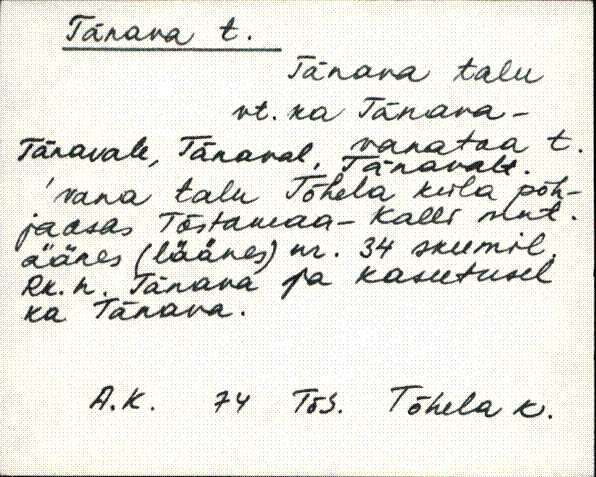 Tänava t.
Tänava talu
vt. ka Tänava-
vanataa t.
Tänavale, Tänaval, Tänavalt.
'vana talu Tõhela küla põh-
jaosas Tõstamaa-Kalli mnt.
äänes (läänes) nr. 34 skeemil.
Rk. n. Tänava ja kasutusel
ka Tänava.
A.K. 74 Tõs. Tõhela k.